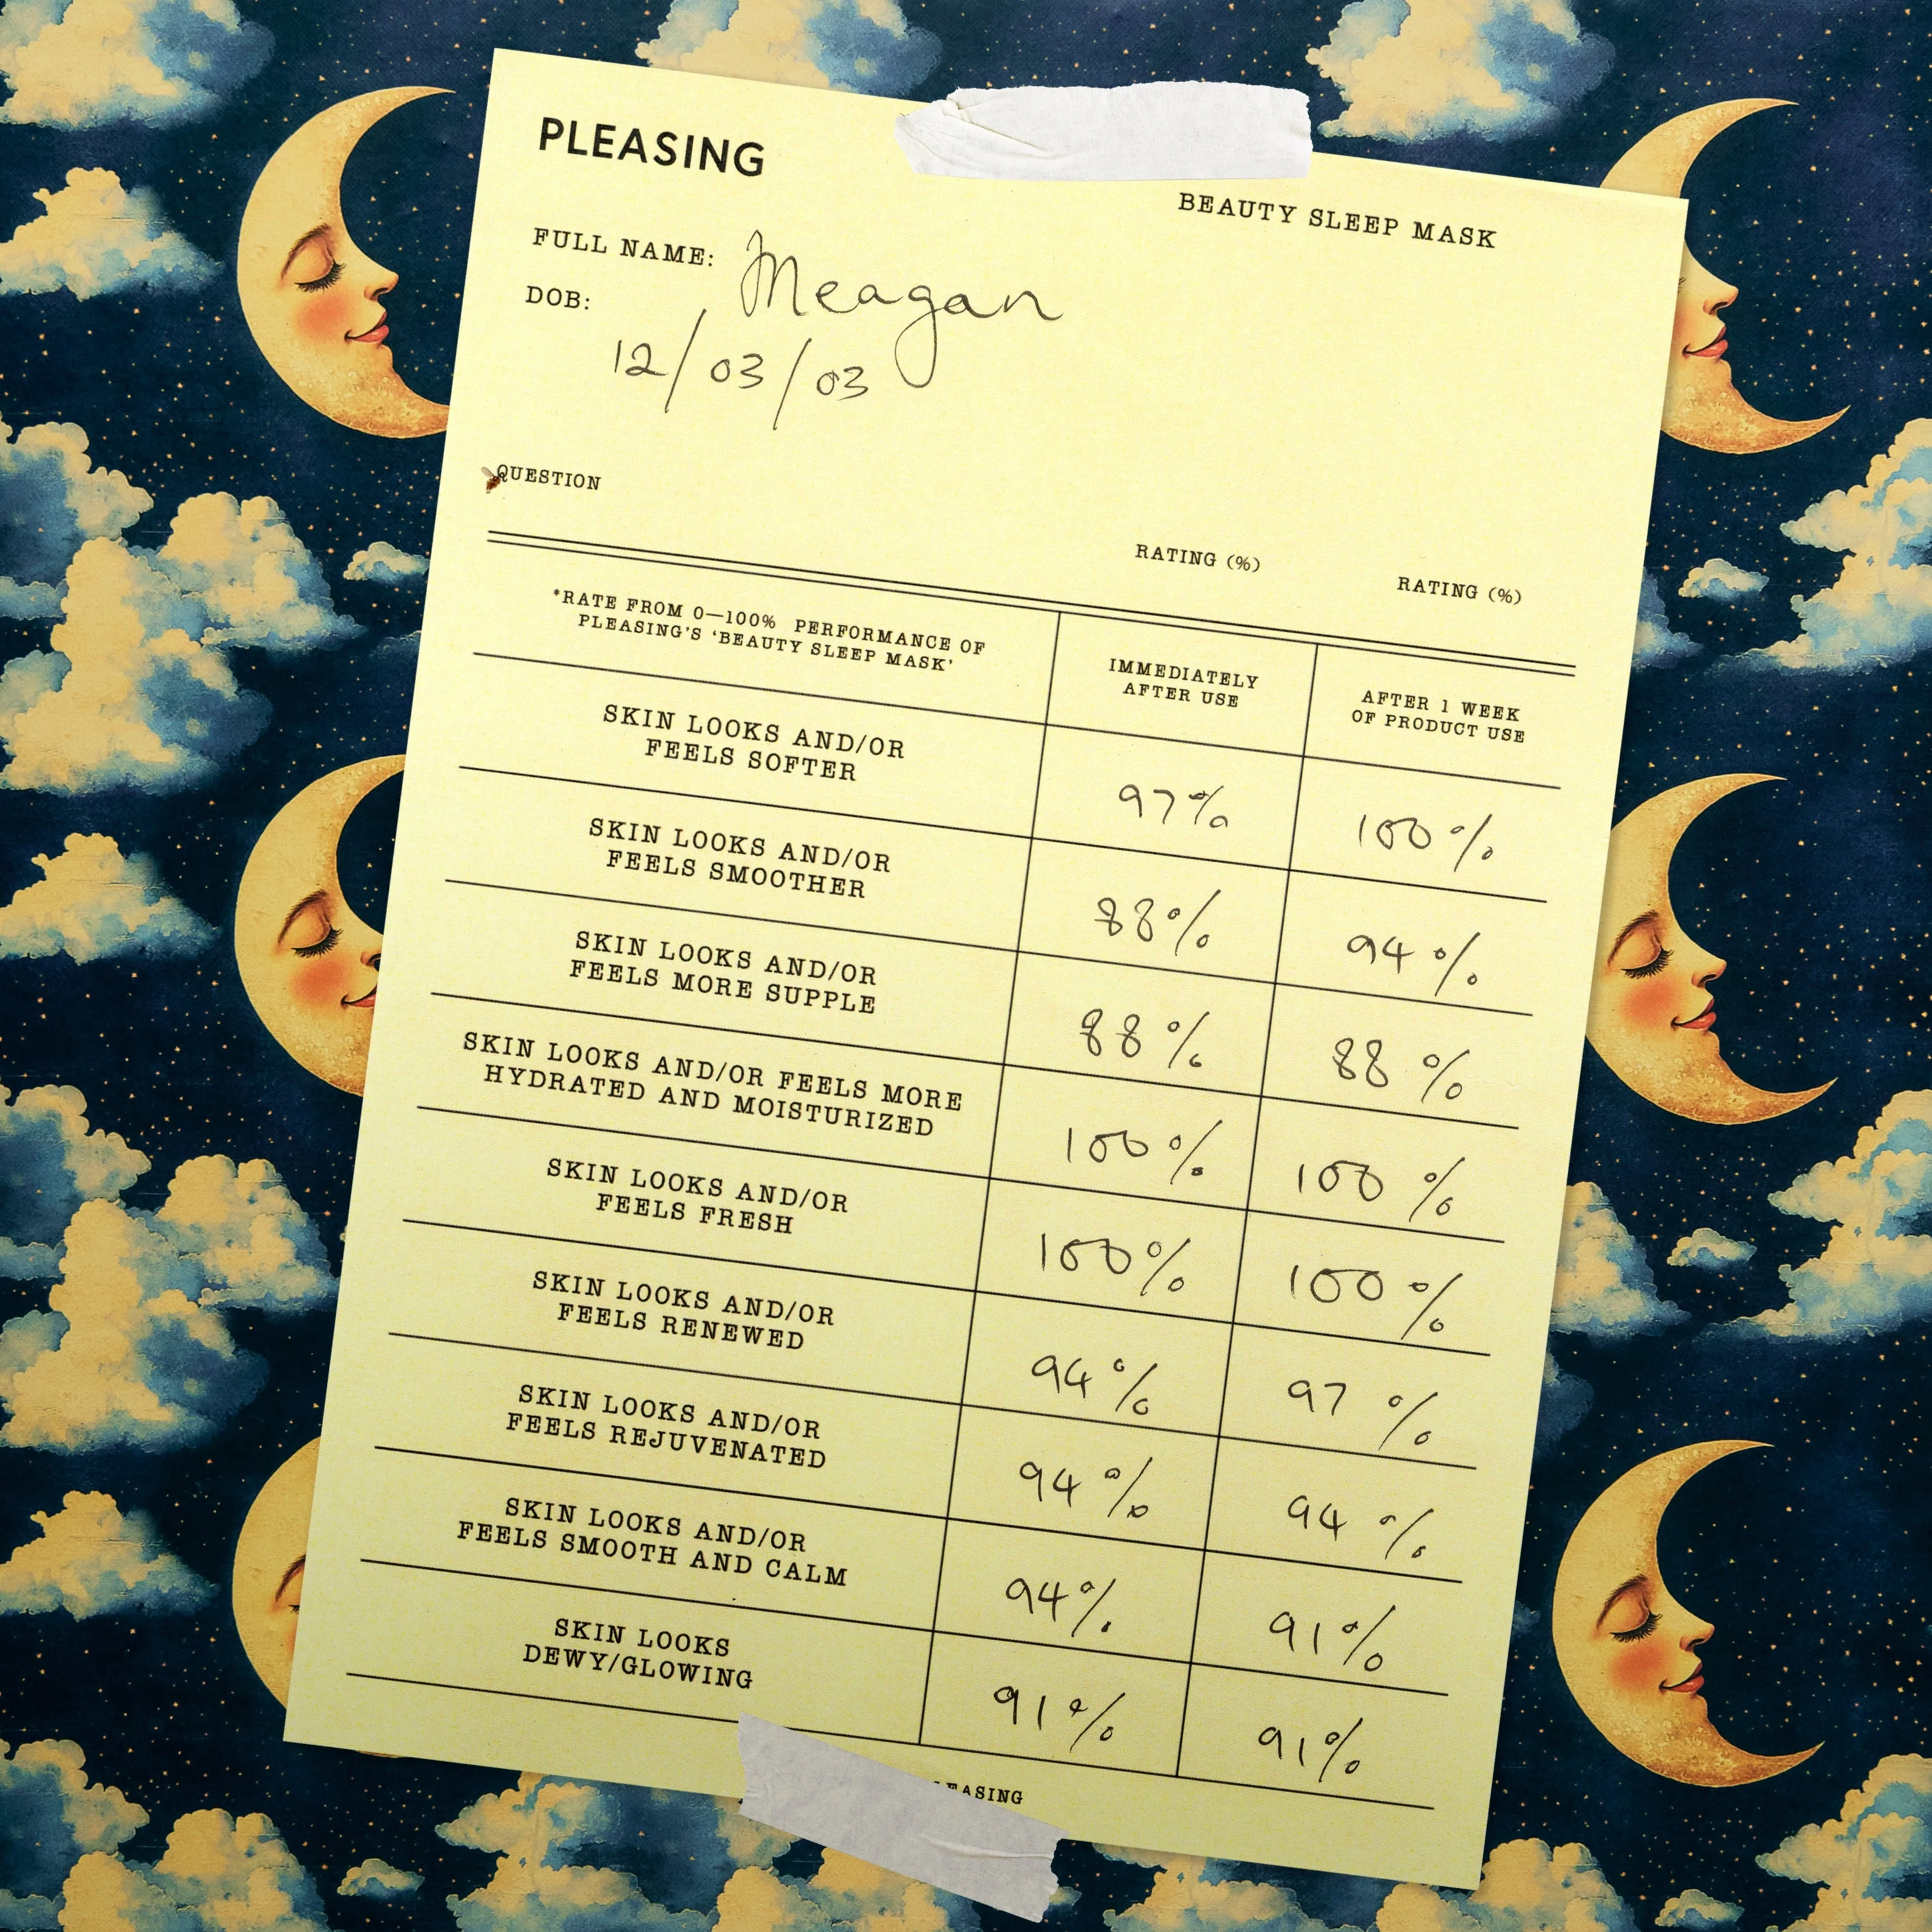 PLEASING
BEAUTY SLEEP MASK
FULL NAME: Meagan
DOB:
12/03/03
QUESTION
RATING (%)
RATING (%)
*RATE FROM 0—100% PERFORMANCE OF
PLEASING'S 'BEAUTY SLEEP MASK'
IMMEDIATELY
AFTER USE
AFTER 1 WEEK
OF PRODUCT USE
SKIN LOOKS AND/OR
FEELS SOFTER
97%
100%
SKIN LOOKS AND/OR
FEELS SMOOTHER
88%
94%
SKIN LOOKS AND/OR
FEELS MORE SUPPLE
88%
88%
SKIN LOOKS AND/OR FEELS MORE
HYDRATED AND MOISTURIZED
100%
100%
SKIN LOOKS AND/OR
FEELS FRESH
100%
100%
SKIN LOOKS AND/OR
FEELS RENEWED
94%
97%
SKIN LOOKS AND/OR
FEELS REJUVENATED
94%
94%
SKIN LOOKS AND/OR
FEELS SMOOTH AND CALM
94%
91%
SKIN LOOKS
DEWY/GLOWING
91%
91%